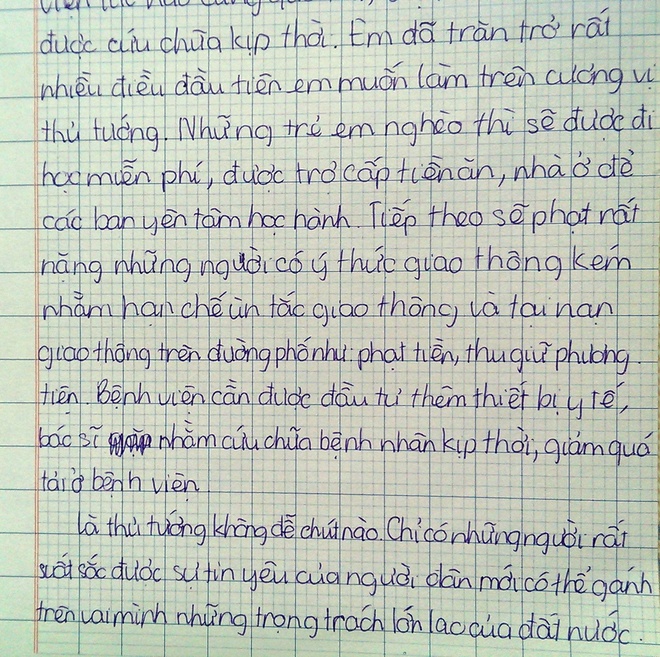 viện lúc nào cũng quá
được cứu chữa kịp thời. Em đã trằn trở rất
nhiều điều đầu tiên em muốn làm trên cương vị
thủ tướng. Những trẻ em nghèo thì sẽ được đi
học miễn phí, được trợ cấp tiền ăn, nhà ở để
các bạn yên tâm học hành. Tiếp theo sẽ phạt rất
nặng những người có ý thức giao thông kém
nhằm hạn chế ùn tắc giao thông và tai nạn
giao thông trên đường phố như: phạt tiền, thu giữ phương
tiện. Bệnh viện cần được đầu tư thêm thiết bị y tế,
bác sĩ nhằm cứu chữa bệnh nhân kịp thời, giảm quá
tải ở bệnh viện
Là thủ tướng không dễ chút nào. Chỉ có những người rất
suất sắc được sự tin yêu của người dân mới có thể gánh
trên vai mình những trọng trách lớn lao của đất nước.